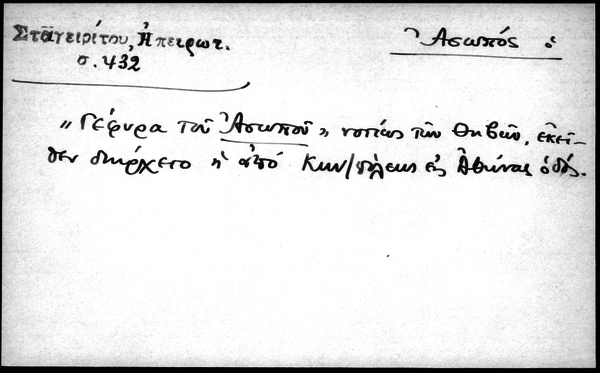 Σταγειρίτου, Ἠπειρωτ.
σ. 432
Ἀσωπός ὁ
"Γέφυρα τοῦ Ἀσωποῦ" νοτίως τῶν Θηβῶν, ἐκεῖ-
θεν διήρχετο ἡ ἀπό Κων/πόλεως εἰς Ἀθήνας ὁδός.